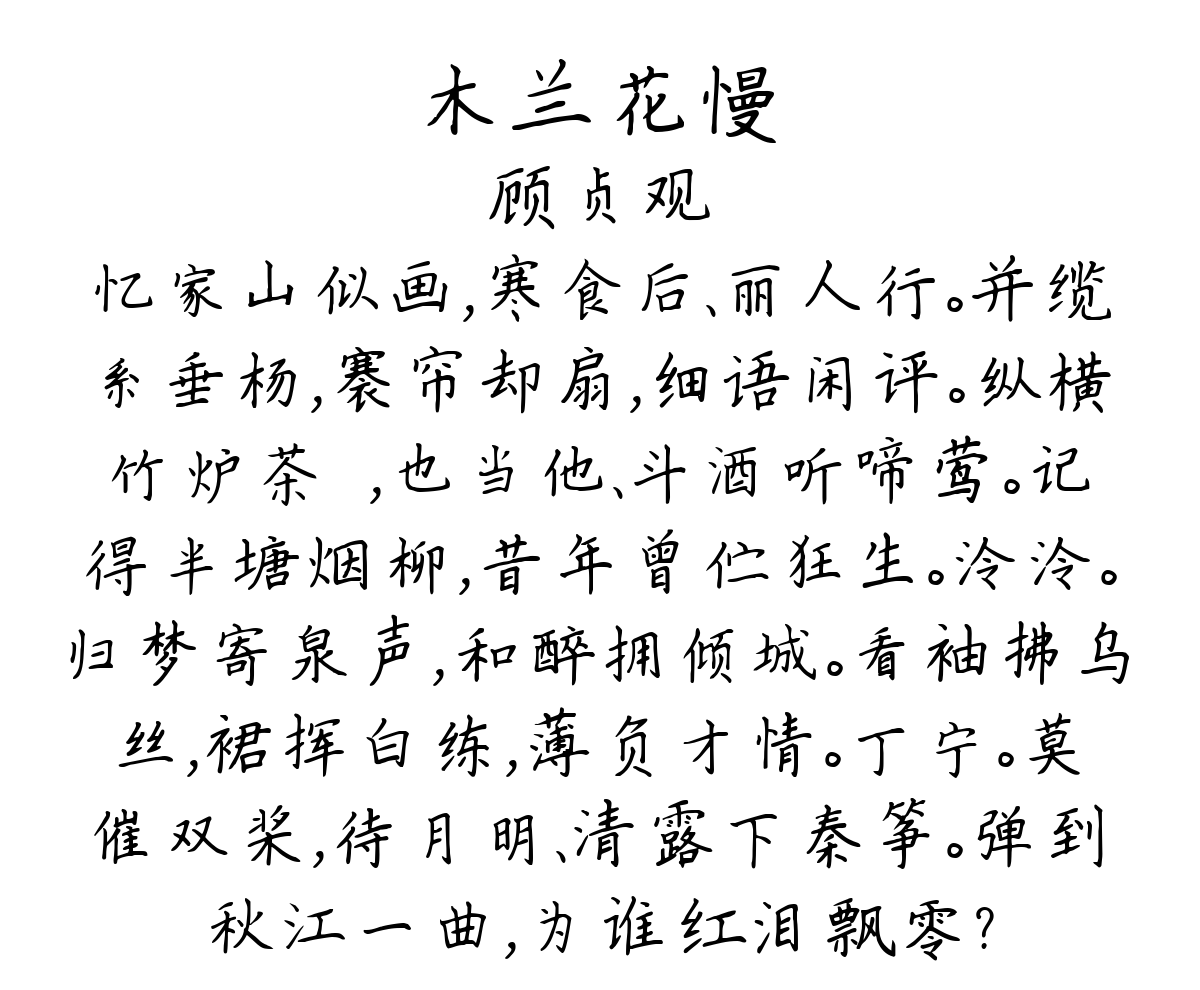 木兰花慢
顾贞观
忆家山似画,寒食后、丽人行。并缆
系垂杨,褰帘却扇,细语闲评。纵横
竹炉茶 ,也当他、斗酒听啼莺。记
得半塘烟柳,昔年曾伫狂生。泠泠。
归梦寄泉声,和醉拥倾城。看袖拂乌
丝,裙挥白练,薄负才情。丁宁。莫
催双桨,待月明、清露下秦筝。弹到
秋江一曲,为谁红泪飘零?